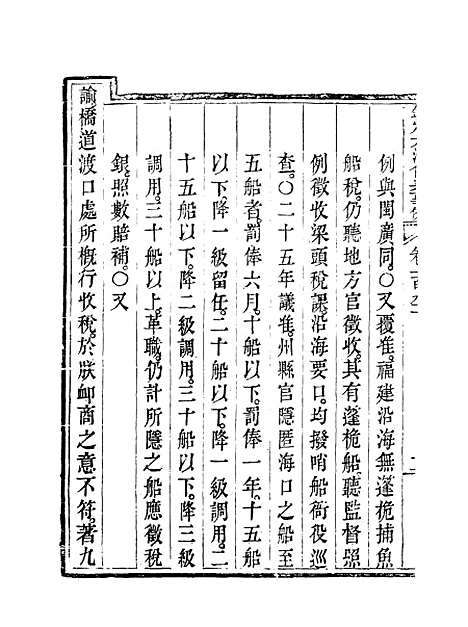 例與閩廣同。○又覆准。福建沿海無篷桅捕魚
船稅。仍聽地方官徵收。其有篷桅船。聽監督照
例徵收梁頭稅課。沿海要口。均撥哨船衙役巡
查。○二十五年議准。州縣官隱匿海口之船至
五船者。罰俸六月。十船以下。罰俸一年。十五船
以下。降一級留任。二十船以下。降一級調用。二
十五船以下。降二級調用。三十船以下。降三級
調用。三十船以上。革職。仍計所隱之船應徵稅
銀。照數賠補。○又
諭橋道渡口處所概行收稅。於朕卹商之意不符。著九